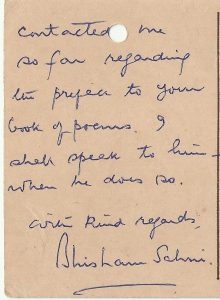 contacted me
so far regarding
the preface to your
book of poems. I
shall speak to him –
when he does so.
With kind regards,
Bhisham Sahni.